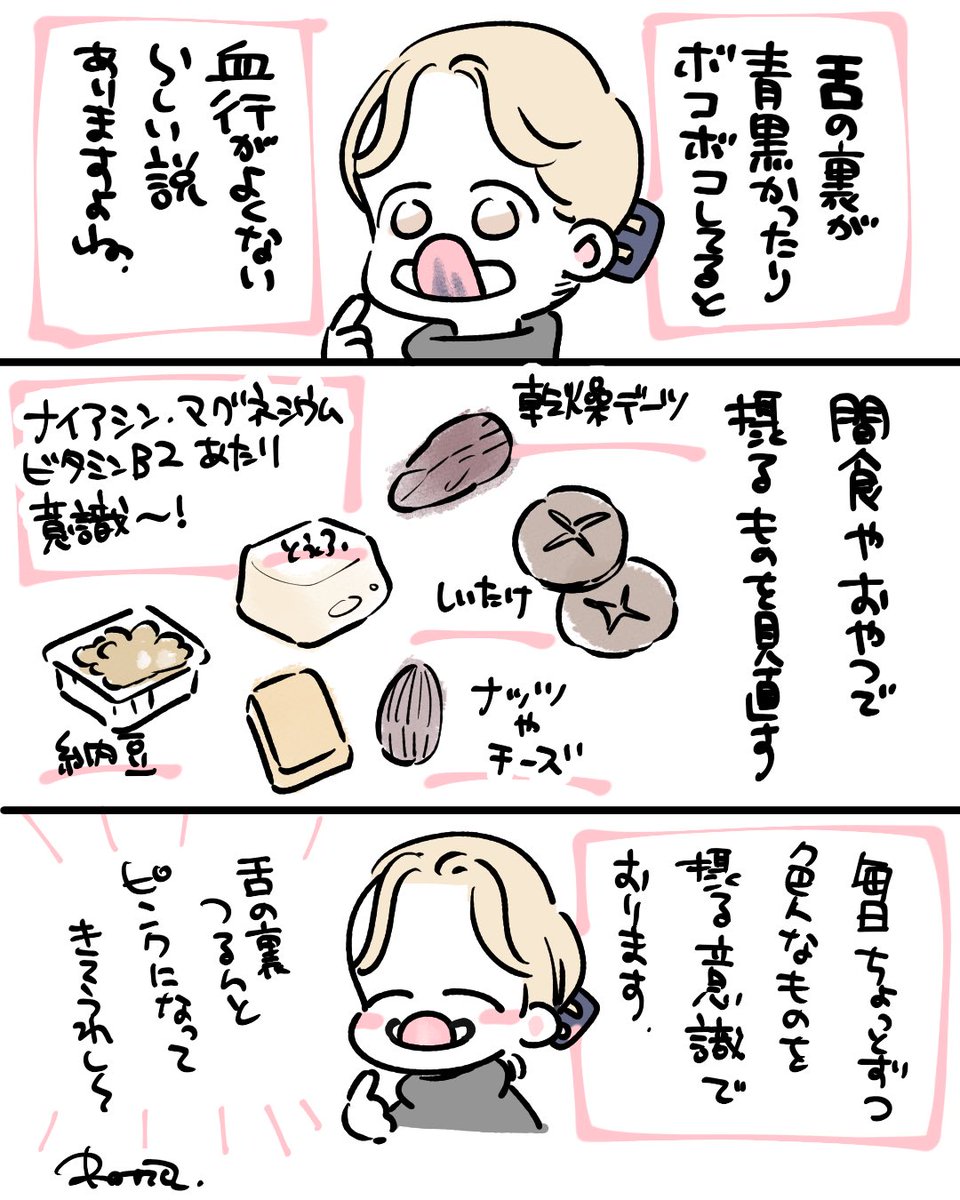 舌の裏が
青黒かったり
ボコボコしてると
血行がよくない
らしい説
ありますよね、
間食やおやつで
摂るものを見直す
乾燥デーツ
ナイアシン・マグネシウム
ビタミンB2 あたり
意識〜!
とうふ
しいたけ
ナッツ
や
チーズ
納豆
毎日ちょっとずつ
色んなものを
摂る意識で
おります.
舌の裏
つるんと
ピンクになって
きてうれし〜